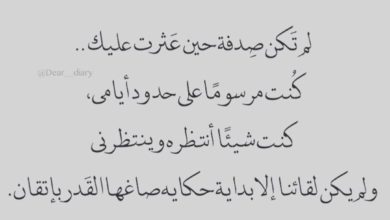 لم تَكن صِدفة حين عَثرت عليك..
@Dear__diary
كُنت مرسومًا على حدود أيامى،
كنت شيئًا أنتظره وينتظرنى
ولم يكن لقائنا إلا بداية حكايه صاغها القَدر بإتقان.